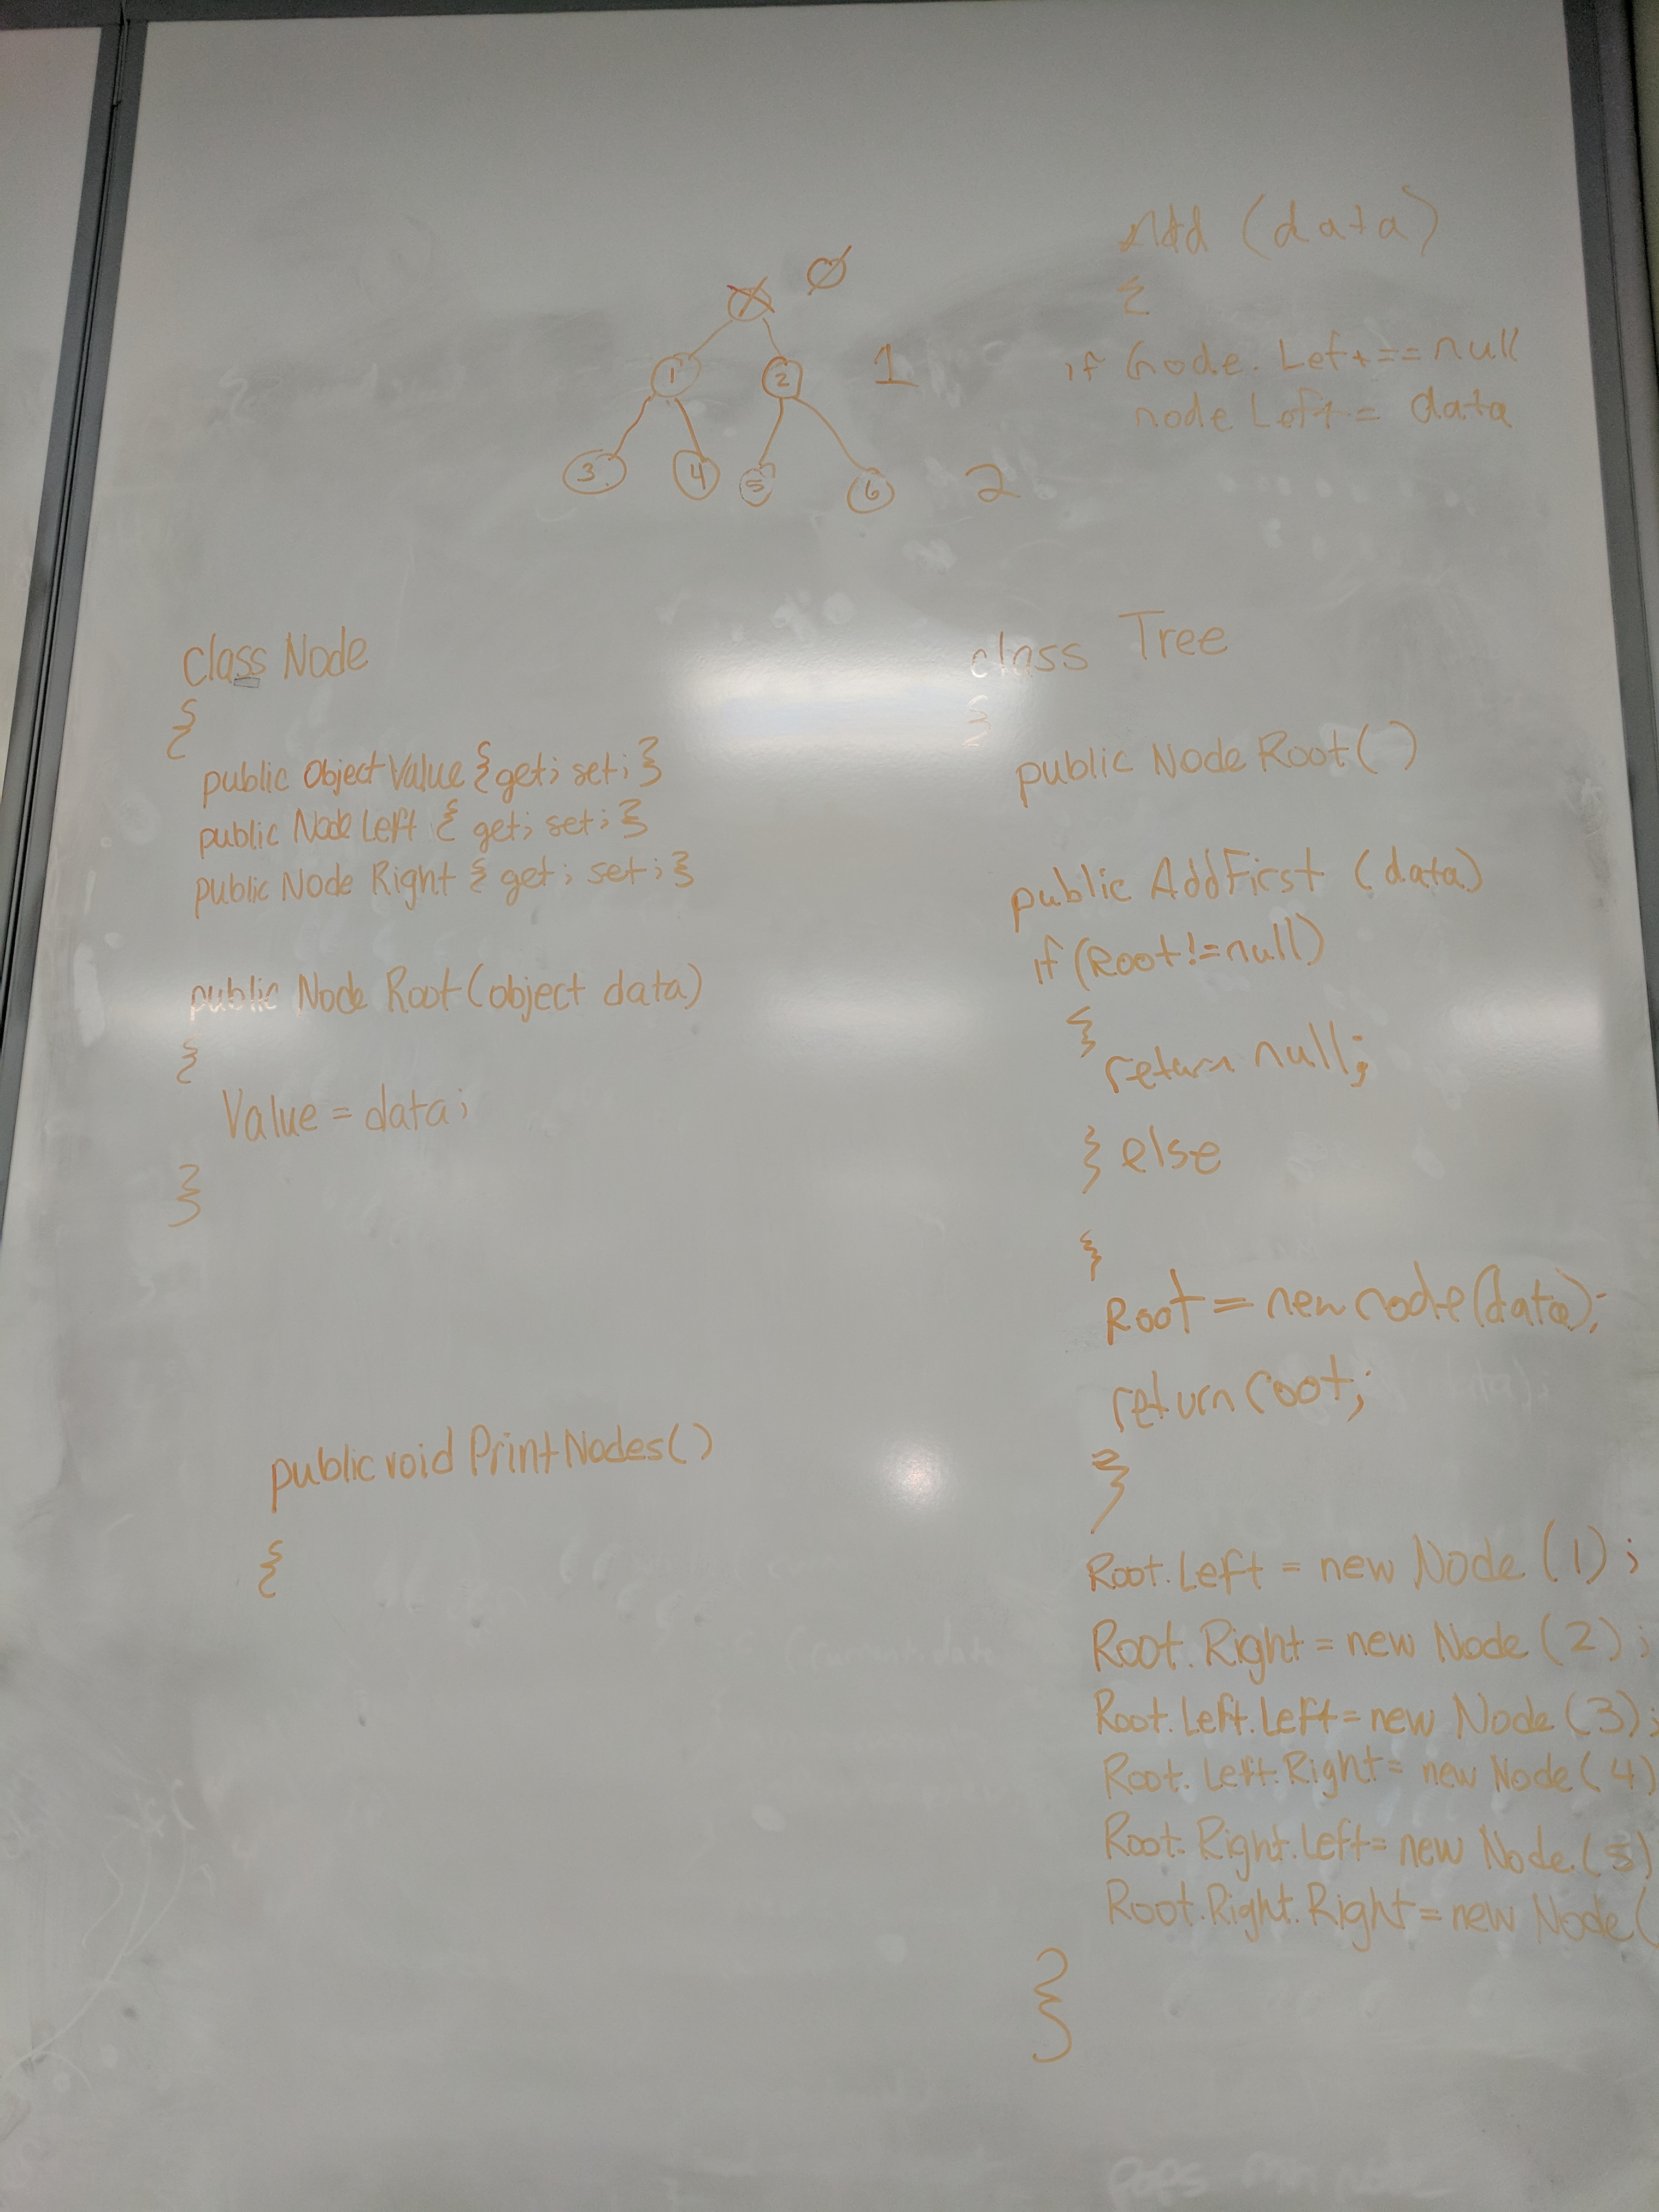 Ø
X
1 2 1
3 4 5 6 2
Add (data)
{
if (node.Left==null
node Left = data
class Node
{
public Object Value { get; set; }
public Node Left { get; set; }
public Node Right { get; set; }
public Node Root (object data)
{
Value = data;
}
public void PrintNodes()
{
class Tree
{
public Node Root()
public AddFirst (data)
if (Root != null)
{
return null;
} else
{
Root = new node(data);
return root;
}
Root.Left = new Node (1);
Root.Right = new Node (2);
Root.Left.Left = new Node (3);
Root.Left.Right = new Node (4)
Root.Right.Left = new Node (5)
Root.Right.Right = new Node (
}